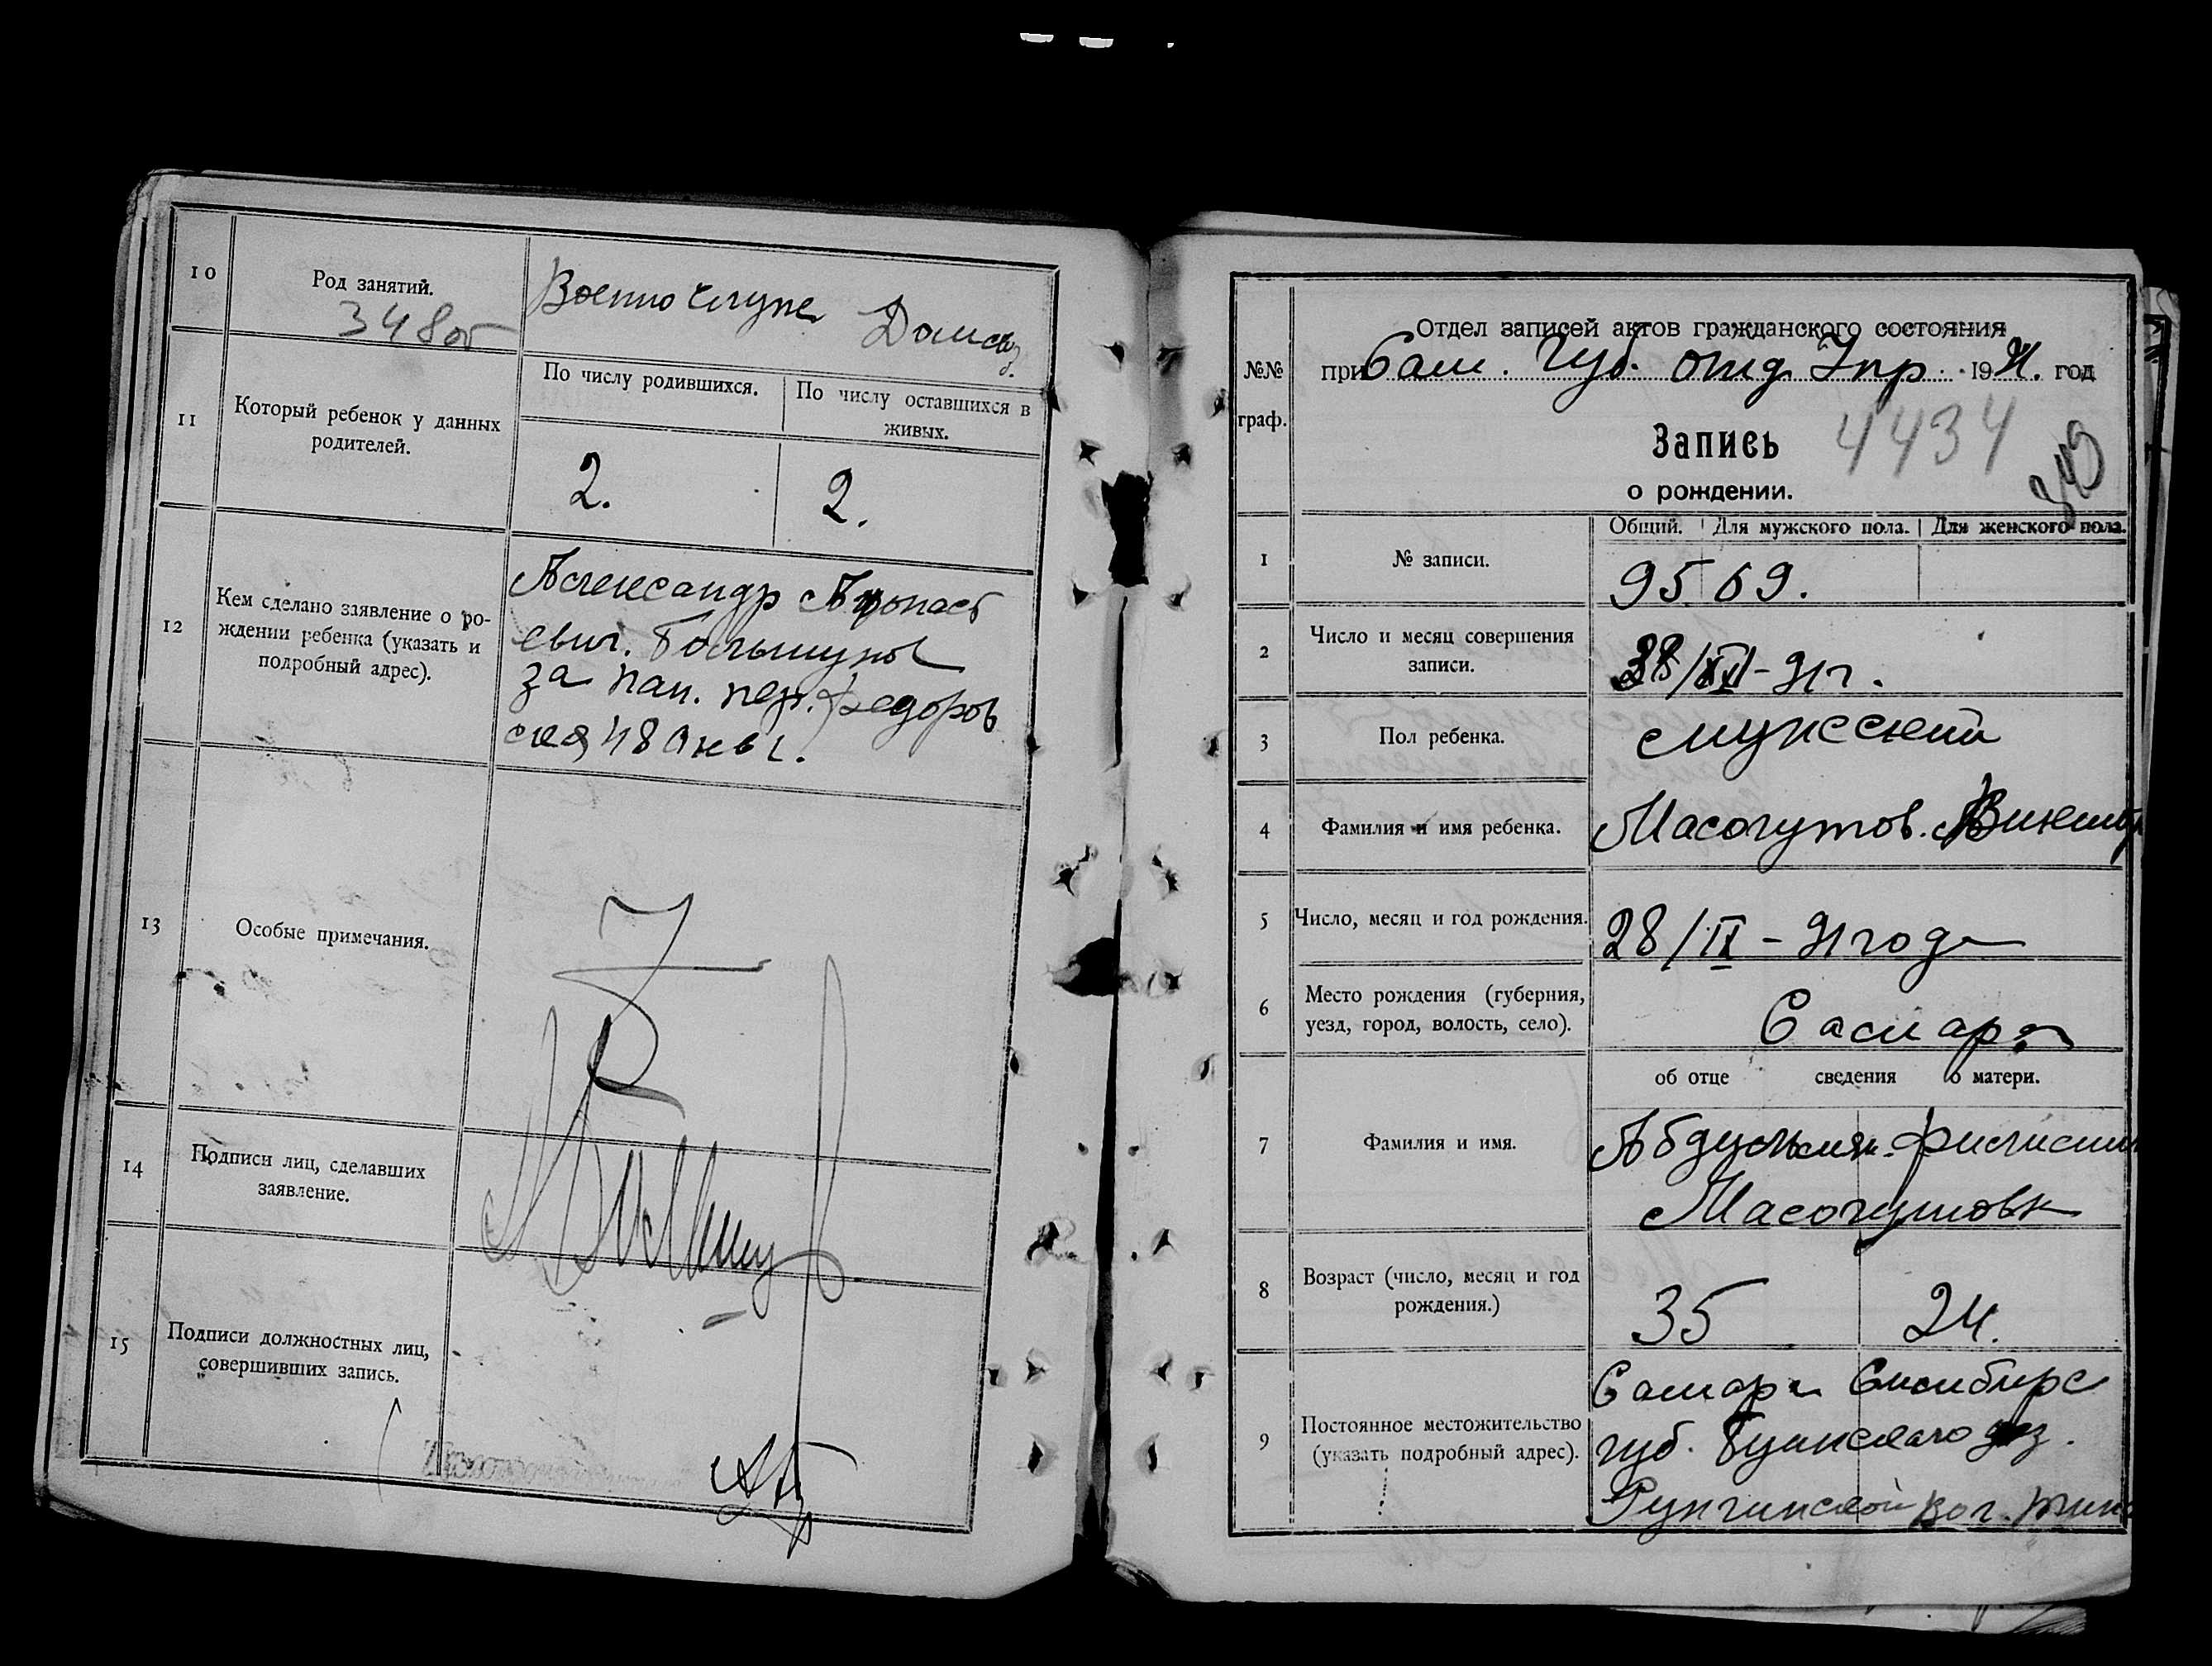 10
Род занятий.
348об
Военнослуж Домохоз.
11
Который ребенок у данных
родителей.
По числу родившихся.
По числу оставшихся в
живых.
2.
2.
12
Кем сделано заявление о ро-
ждении ребенка (указать и
подробный адрес).
Александр Афонас
евич. Большунов
за пан. пер. Федоров
ская 48
13
Особые примечания.
14
Подписи лиц, сделавших
заявление.
15
Подписи должностных лиц,
совершивших запись.
№№
граф.
Отдел записей актов гражданского состояния
при Сам. Губ. отд Упр. 1921. год
Запись
4434
349
о рождении.
1
№ записи.
Общий.
Для мужского пола.
Для женского пола.
9569.
2
Число и месяц совершения
записи.
28/XII-21г.
3
Пол ребенка.
мужской
4
Фамилия и имя ребенка.
Масогутов. Виктор
5
Число, месяц и год рождения.
28/IX-21года
6
Место рождения (губерния,
уезд, город, волость, село).
Самара
об отце сведения о матери.
7
Фамилия и имя.
Масогутовы
8
Возраст (число, месяц и год
рождения.)
35
24.
9
Постоянное местожительство
(указать подробный адрес).
Самара Симбирс
губ. Буинского уез.
Рунгинской вол.